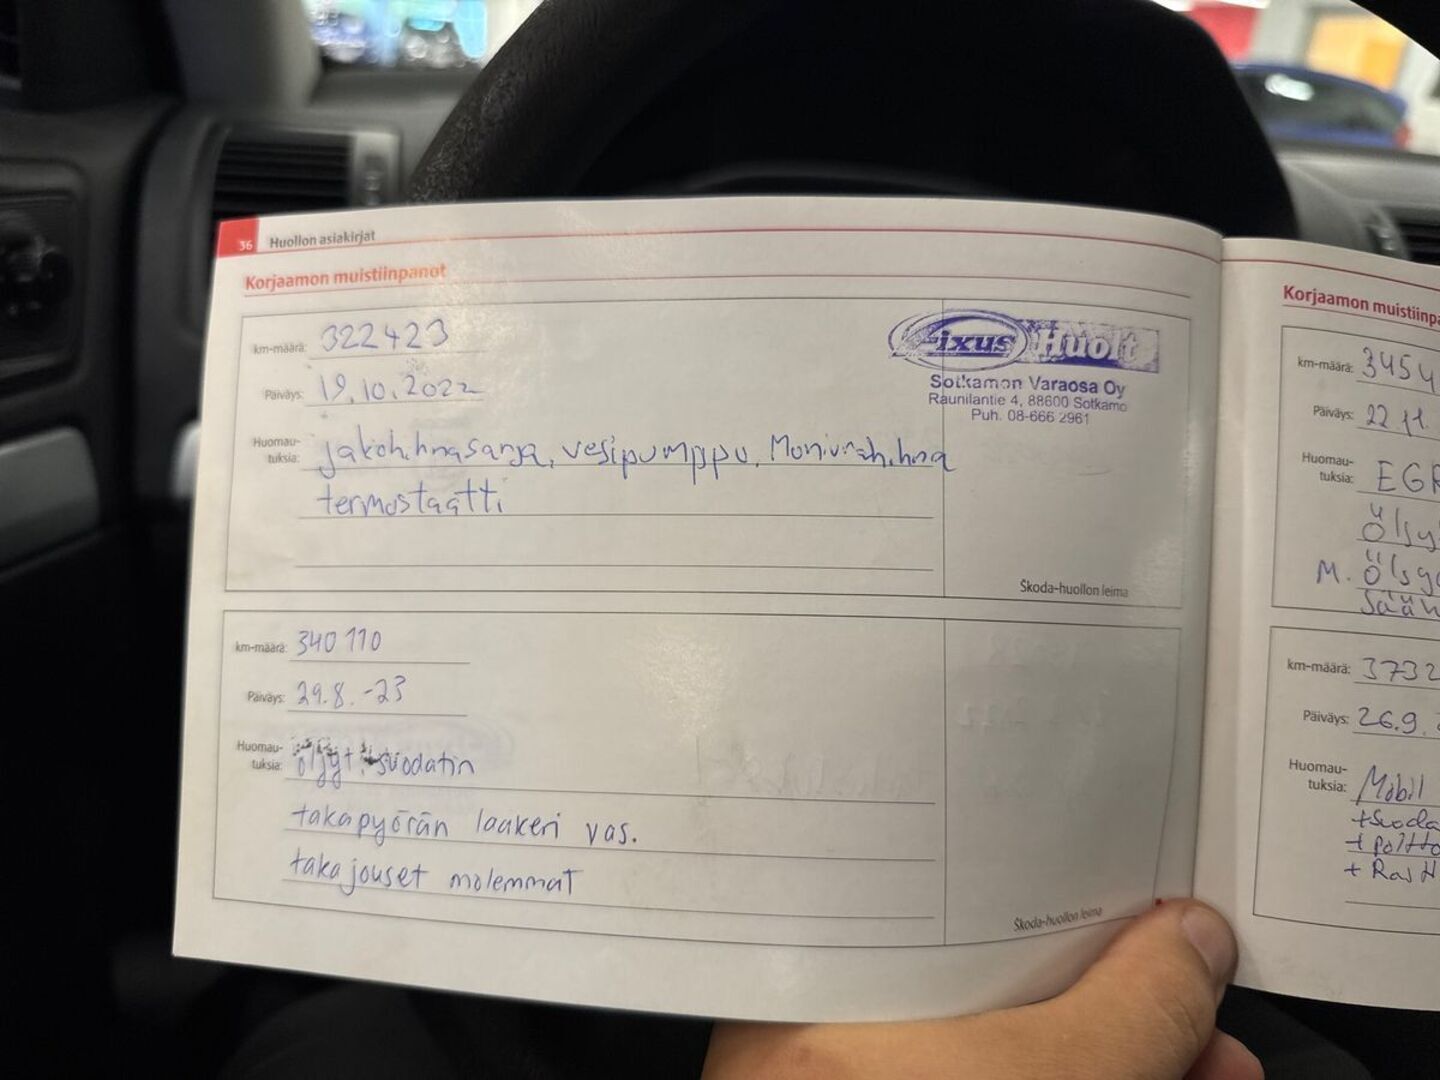 36 Huollon asiakirjat
Korjaamon muistiinpanot
km-määrä: 322423
Päiväys: 19.10.2022
Huomau-
tuksia: jakohihnasarja, vesipumppu, Moniurahihna
termostaatti
Fixus Huolto
Sotkamon Varaosa Oy
Raunilantie 4, 88600 Sotkamo
Puh. 08-666 2961
Škoda-huollon leima
km-määrä: 340 110
Päiväys: 29.8.-23
Huomau-
tuksia: öljyt suodatin
takapyörän laakeri vas.
takajouset molemmat
Škoda-huollon leima
Korjaamon muistiinp
km-määrä: 3454
Päiväys: 22.11.
Huomau-
tuksia: EGR
Öljy
M. Öljy
km-määrä: 3732
Päiväys: 26.9.
Huomau-
tuksia: Mobil
+suoda
+ poltto